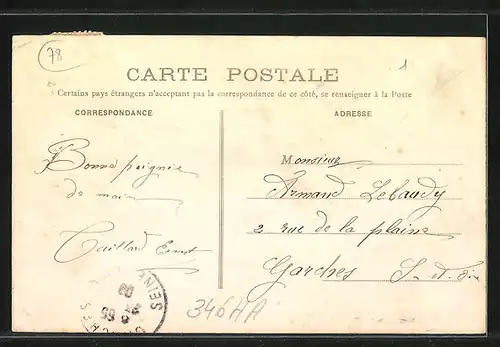 78
1
CARTE POSTALE
Certains pays étrangers n'acceptant pas la correspondance de ce côté, se renseigner à la Poste
CORRESPONDANCE
ADRESSE
Bonne poignée
de main
Caillard Ernest
Monsieur
Armand Lebaudy
2 rue de la plaine
Garches S-et-Oise
SEINE
346HA